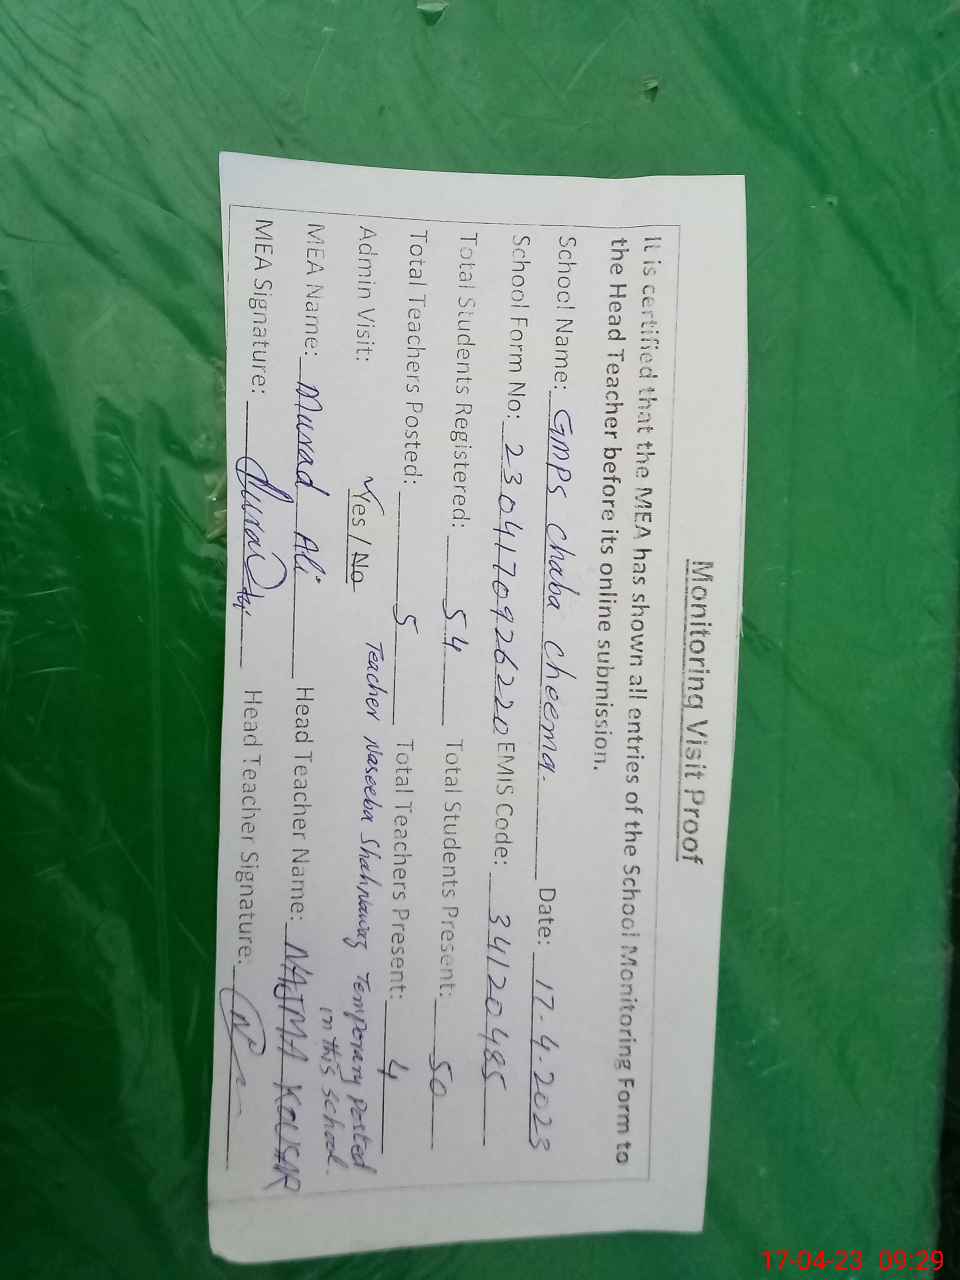 Monitoring Visit Proof
It is certified that the MEA has shown all entries of the School Monitoring Form to
the Head Teacher before its online submission.
School Name: GMPS Chaba Cheema. Date: 17-4-2023
School Form No: 2304170926220 EMIS Code: 34120485
Total Students Registered: 54 Total Students Present: 50
Total Teachers Posted: 5 Total Teachers Present: 4
Admin Visit: Yes / No Teacher Naseeba Shahnawaz Temporary Posted
in this school.
MEA Name: Murad Ali Head Teacher Name: NAJMA KOUSAR
MEA Signature: Head Teacher Signature:
17-04-23 09:29